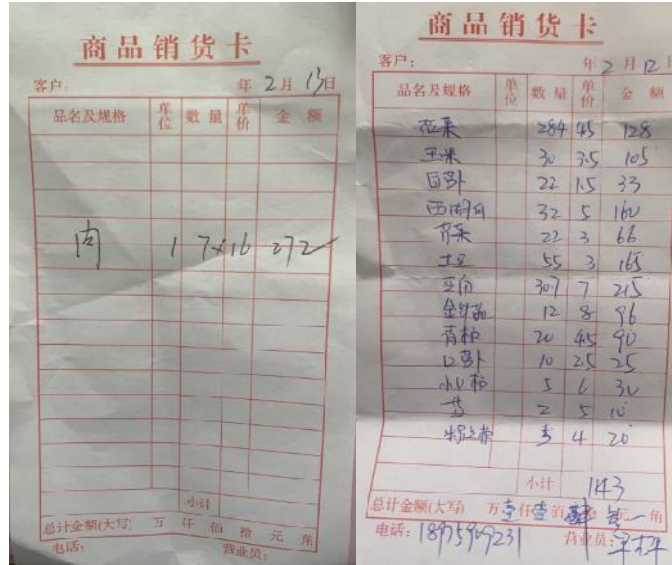 商品销货卡
客户: 年 2 月 13 日
品名及规格 单位 数量 单价 金额
肉 17×16 272
小计
总计金额(大写) 万 仟 佰 拾 元 角
电话: 营业员:
商品销货卡
客户: 年 2 月 12 日
品名及规格 单位 数量 单价 金额
花菜 284 45 128
玉米 30 3.5 105
白卜 22 1.5 33
西胡 32 5 160
芹菜 22 3 66
土豆 55 3 165
豆角 30.7 7 215
金针菇 12 8 96
青椒 20 4.5 90
口卜 10 2.5 25
小口椒 5 6 30
2 5 10
5 4 20
小计 1143
总计金额(大写) 万 壹仟 壹佰 肆 元 角
电话: 18975909231 营业员: